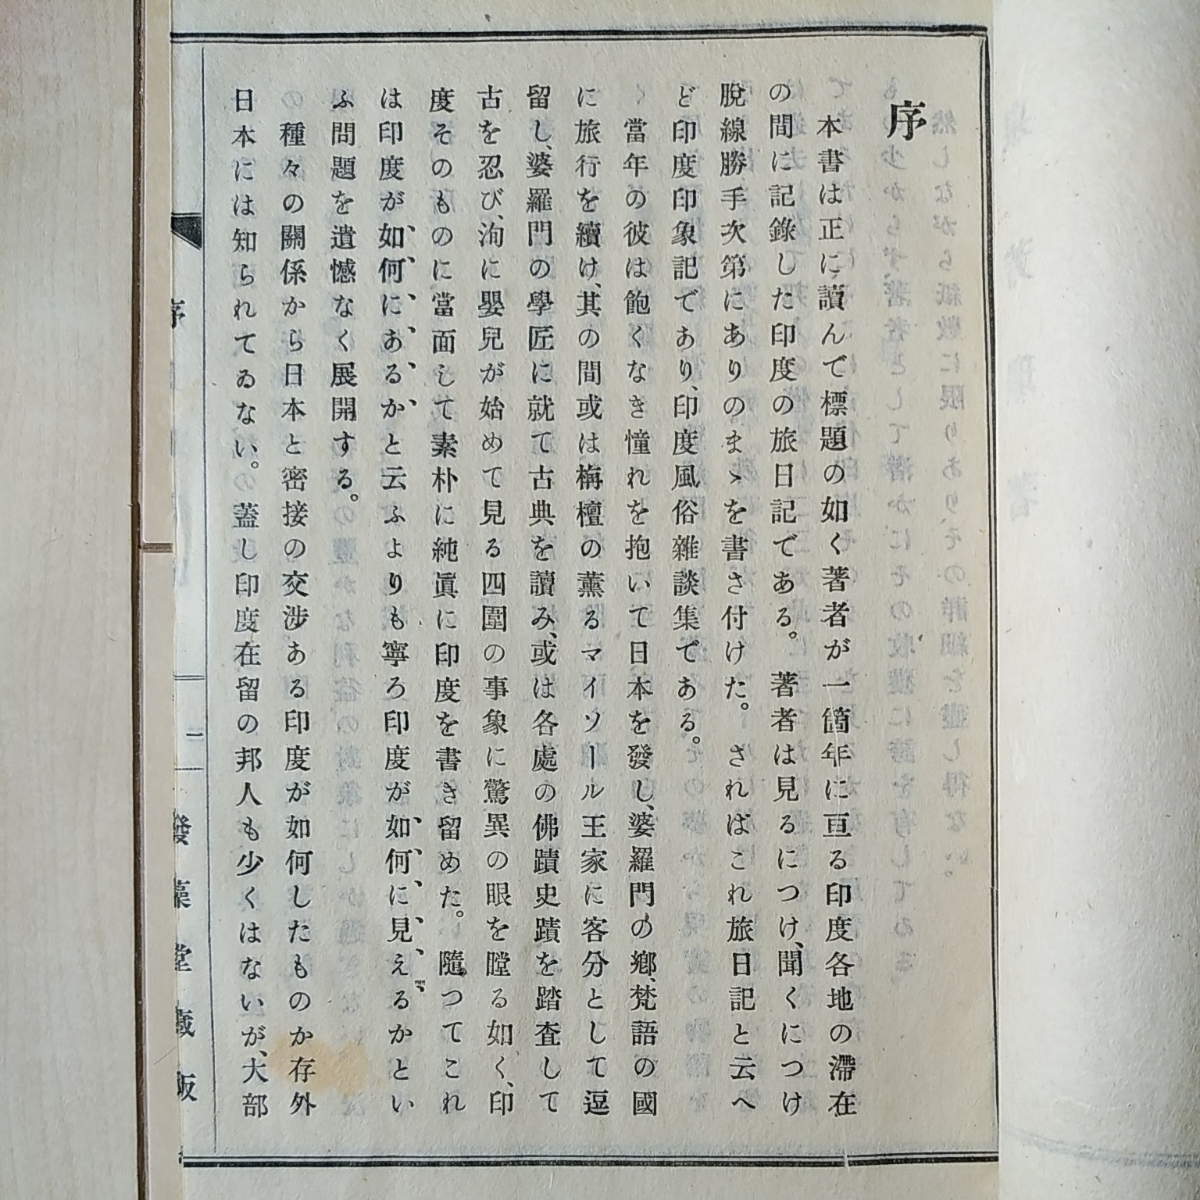 序
本書は正に讀んで標題の如く著者が一箇年に亘る印度各地の滯在
の間に記錄した印度の旅日記である。著者は見るにつけ、聞くにつけ
脫線勝手次第にありのまゝを書き付けた。さればこれ旅日記と云へ
ど印度印象記であり、印度風俗雜談集である。
當年の彼は飽くなき憧れを抱いて日本を發し、婆羅門の鄕、梵語の國
に旅行を續け、其の間或は栴檀の薰るマイソール王家に客分として逗
留し、婆羅門の學匠に就て古典を讀み、或は各處の佛蹟史蹟を踏査して
古を忍び、洵に嬰兒が始めて見る四圍の事象に驚異の眼を瞠る如く、印
度そのものに當面して素朴に純眞に印度を書き留めた。隨つてこれ
は印度が如何にあるかと云ふよりも寧ろ印度が如何に見えるかとい
ふ問題を遺憾なく展開する。
の種々の關係から日本と密接の交涉ある印度が如何したものか存外
日本には知られてゐない。蓋し印度在留の邦人も少くはないが、大部
序
一
發藻堂藏版